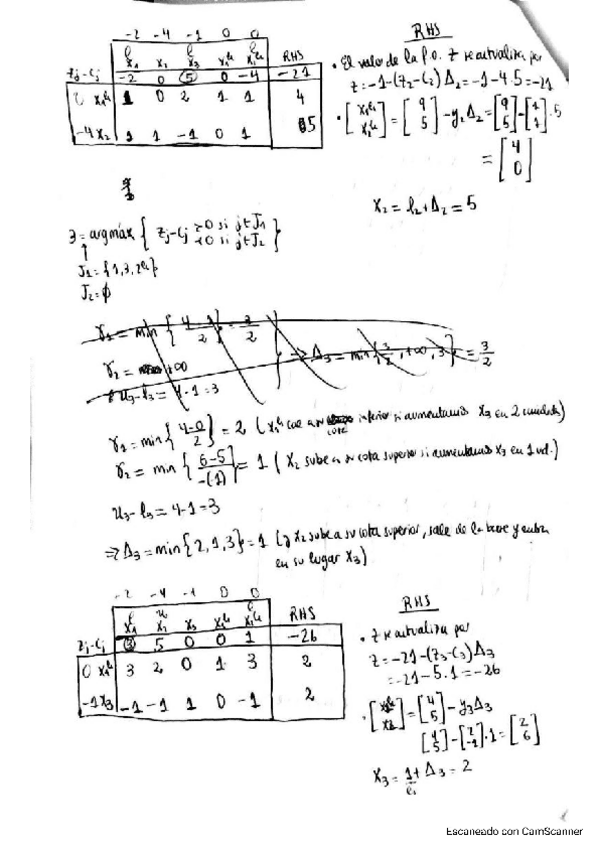 -2 -4 -1 0 0
l l l
x₁ x₂ x₃ x₁ʰ x₂ʰ RHS
zj-cj -2 0 5 0 -4 -21
0 x₁ʰ 1 0 2 1 1 4
-4 x₂ 1 1 -1 0 1 5
RHS
• El valor de la f.o. z se actualiza por
z = -1-(z₂-c₂)Δ₂ = -1-4·5 = -21
• [x₁ʰ x₂ʰ] = [9 5] - y₂Δ₂ = [9 5] - [1 1]·5
= [4 0]
x₂ = l₂+Δ₂ = 5
3 = argmáx { zj-cj >0 si j∈J₁ <0 si j∈J₂ }
J₁ = {1,3,2ʰ}
J₂ = ∅
γ₁ = min { 4-1 / 2 } = 3/2
γ₂ = +∞
u₃-l₃ = 4-1 = 3
⇒ Δ₃ = min{ 3/2, +∞, 3 } = 3/2
γ₁ = min { 4-0 / 2 } = 2 (x₁ʰ cae a su cota inferior si aumentamos x₃ en 2 unidades)
γ₂ = min { 6-5 / -(-1) } = 1 (x₂ sube a su cota superior si aumentamos x₃ en 1 ud.)
u₃-l₃ = 4-1 = 3
⇒ Δ₃ = min{2,1,3} = 1 (y x₂ sube a su cota superior, sale de la base y entra
en su lugar x₃)
-2 -4 -1 0 0
l u l
x₁ x₂ x₃ x₁ʰ x₂ʰ RHS
zj-cj 3 5 0 0 1 -26
0 x₁ʰ 3 2 0 1 3 2
-1 x₃ -1 -1 1 0 -1 2
RHS
• z se actualiza por
z = -21-(z₃-c₃)Δ₃
= -21-5·1 = -26
• [x₁ʰ x₂] = [4 5] - y₃Δ₃
[4 5] - [2 -1]·1 = [2 6]
x₃ = 1+Δ₃ = 2
l₃
Escaneado con CamScanner